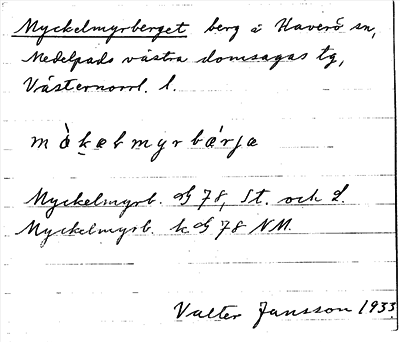 Myckelmyrberget berg i Haverö sn,
Medelpads västra domsagas tg,
Västernorrl. l.
Myckelmyrb. 78, St. och L.
Myckelmyrb. k 78 NM.
Valter Jansson 1933